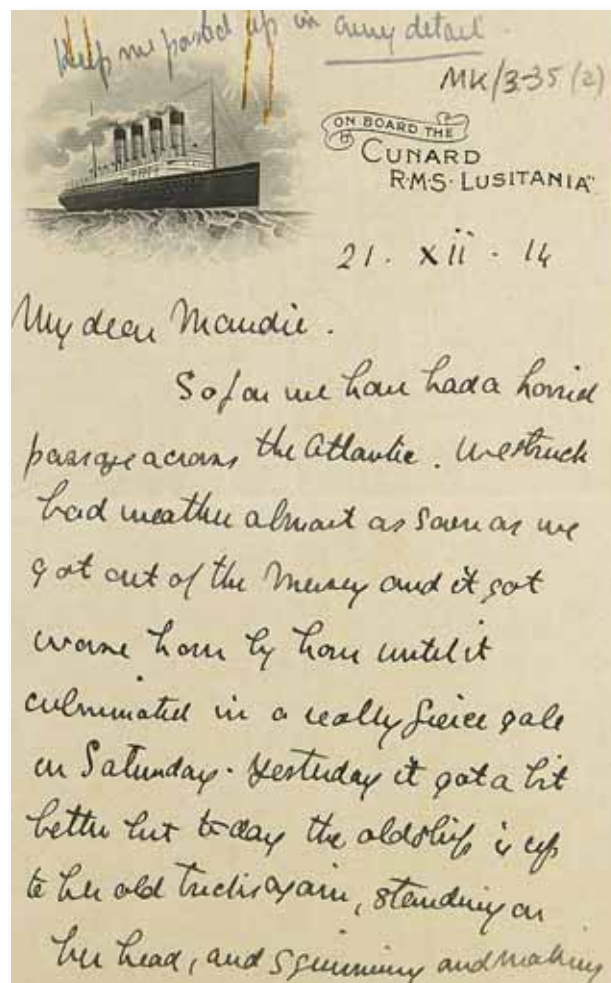 Keep me posted up in every detail.
MK/3-35 (2)
ON BOARD THE
CUNARD
R·M·S· LUSITANIA"
21 · XII · 14
My dear Maudie.
So far we have had a horrid
passage across the Atlantic. We struck
bad weather almost as soon as we
got out of the Mersey and it got
worse hour by hour until it
culminated in a really fierce gale
on Saturday. Yesterday it got a bit
better but to-day the old ship is up
to her old tricks again, standing on
her head, and squirming and making